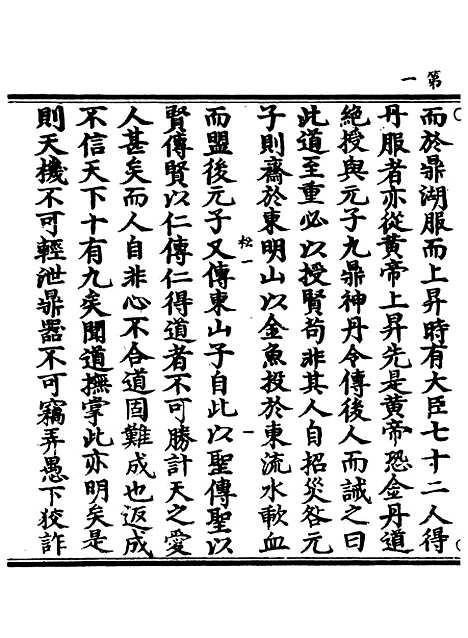 第一
而於鼎湖服而上昇時有大臣七十二人得
丹服者亦從黃帝上昇先是黃帝恐金丹道
絕授與元子九鼎神丹令傳後人而誡之曰
此道至重必以授賢苟非其人自招災咎元
子則齋於東明山以金魚投於東流水歃血
松一
一
而盟後元子又傳東山子自此以聖傳聖以
賢傳賢以仁傳仁得道者不可勝計天之愛
人甚矣而人自非心不合道固難成也返成
不信天下十有九矣聞道撫掌此亦明矣是
則天機不可輕泄鼎器不可竊弄愚下狡詐